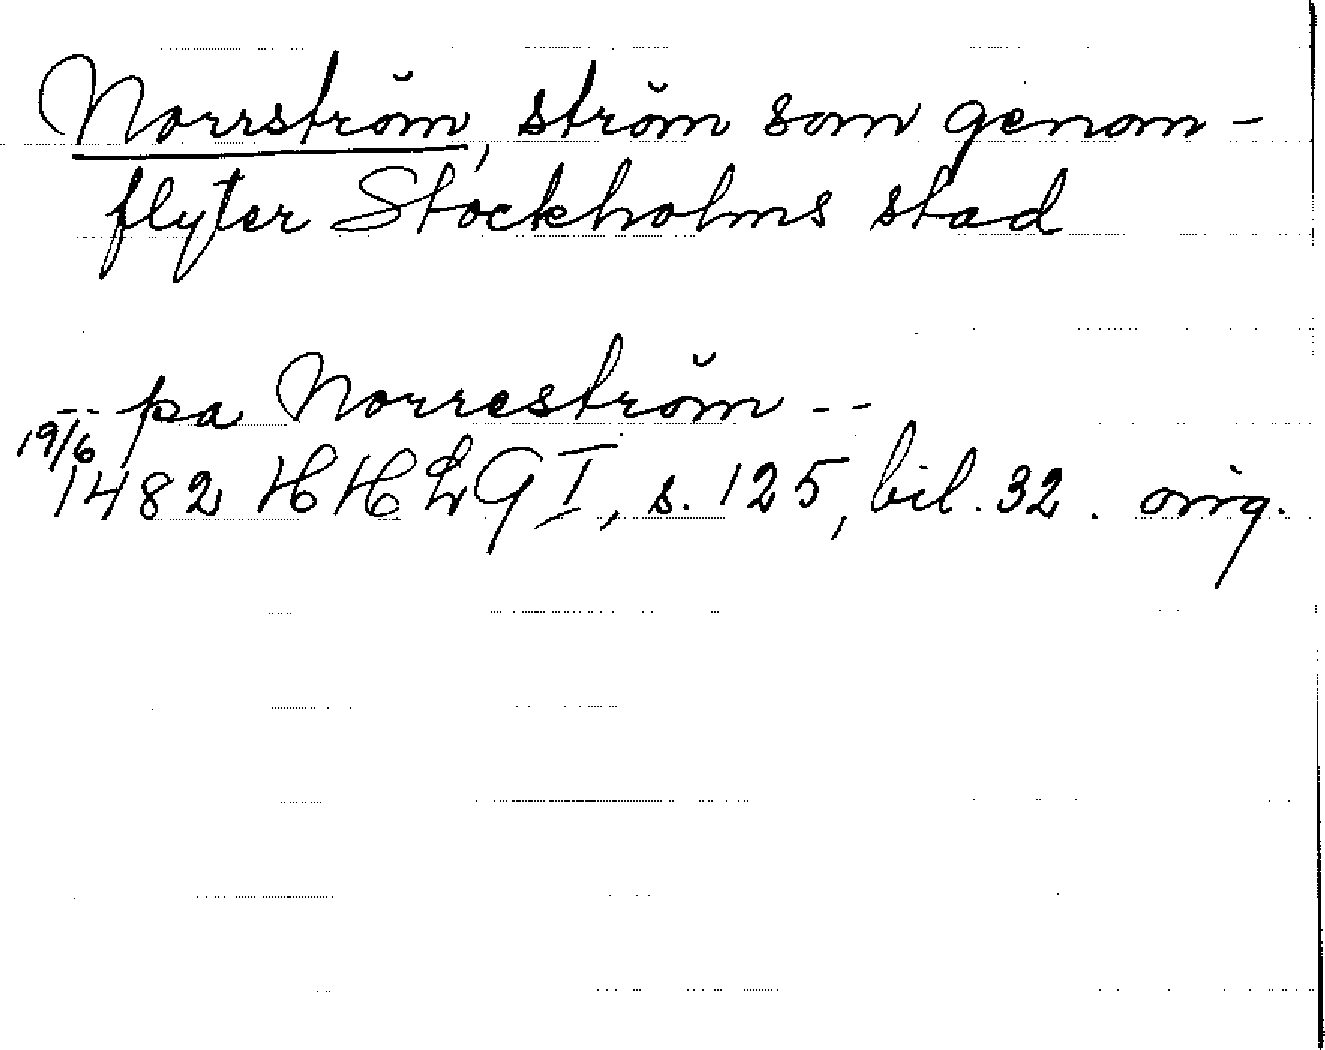 Norrström, ström som genom-
flyter Stockholms stad
-- pa Norreström --
19/6
1482 HHLG I, s. 125, bil. 32. orig.